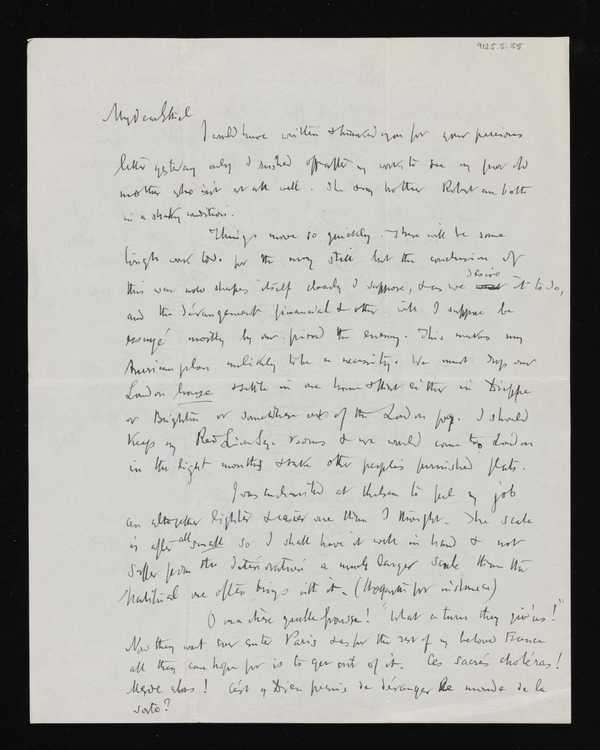 9125.5.55
My dear Ethel
I would have written & thanked you for your precious
letter yesterday only I rushed off after my work to see my poor old
mother who isn't at all well. She & my brother Robert are both
in a shaky condition.
Things move so quickly. There will be some
tough work to do for the navy still but the conclusion of
this war now shapes itself clearly I suppose, & as we desire it to do,
and the dérangement financial & other will I suppose be
mostly by our friend the enemy. This makes my
American plan unlikely to be a necessity. We must
London house & settle in one home & that either in Dieppe
or Brighton or somewhere out of the London fog. I should
keep my Red Lion Sq. rooms & we would come to London
in the light months & take other people's furnished flats.
I was enchanted at Chelsea to feel my job
an altogether lighter & easier one than I thought. The scale
is after all small so I shall have it well in hand & not
suffer from the deterioration a much larger scale than the
habitual one often brings with it. (Hogarth for instance)
O ma chère quelle frousse! "What a turn they giv'us!"
Now they wont ever enter Paris & as for the rest of my beloved France
all they can hope for is to get out of it. Ces sacrés choléras!
Merde alors! C'est y Dieu permis de déranger le monde de la
sorte?